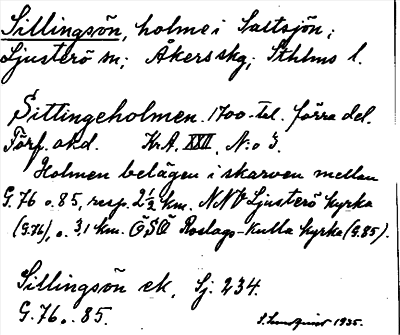 Sillingsön, holme i Saltsjön;
Ljusterö sn; Åkers skg; Sthlms l.
Sillingeholmen. 1700-tal. förra del.
Förf. okd. Kr.A. XXII. N:o 3.
Holmen belägen i skarven mellan
G.76 o. 85, resp. 2½ km. NNV Ljusterö kyrka
(G.76), o. 3,1 km. ÖSÖ Roslags-Kulla kyrka (G.85).
Sillingsön ek. Sj. 234.
G.76 o. 85.
S. Lundqvist 1935.